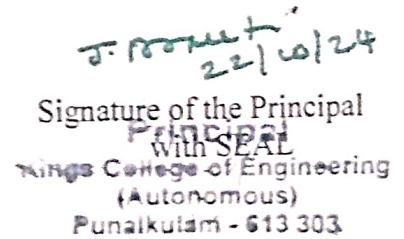 J.
22/10/24
Signature of the Principal
Principal
with SEAL
Kings College of Engineering
(Autonomous)
Punalkulam - 613 303